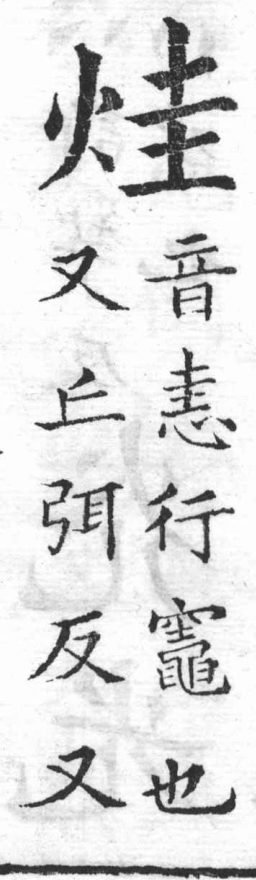 烓
音恚行竈也
又丘弭反又